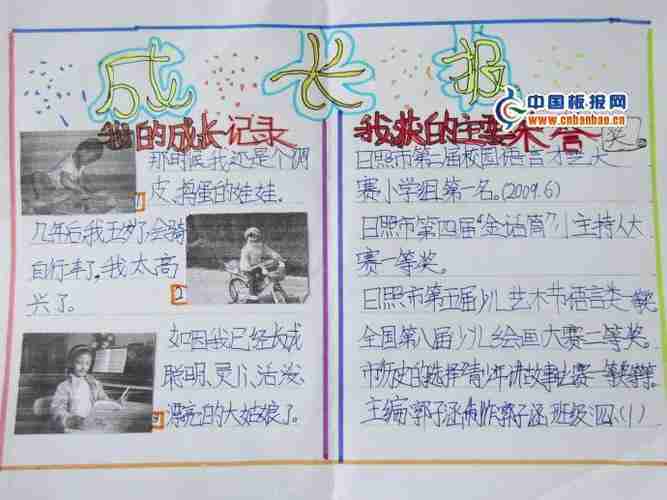 成长报
中国板报网
www.cnbanbao.cn
我的成长记录
那时候我还是个调
皮、捣蛋的娃娃。
1
几年后,我五岁了,会骑
自行车了。我太高
兴了。
2
如因我已经长成
聪明、灵儿、活泼、
漂亮的大姑娘了。
3
我获的主要荣誉
奖
日照市第三届校园语言才艺大
赛小学组第一名。(2009.6)
日照市第四届“金话筒”小主持人大
赛一等奖。
日照市第五届少儿艺术节语言类一等奖
全国第八届少儿绘画大赛二等奖。
青少年讲故事比赛一等奖等等。
主编:郭子涵 制作:郭子涵 班级:四(1)